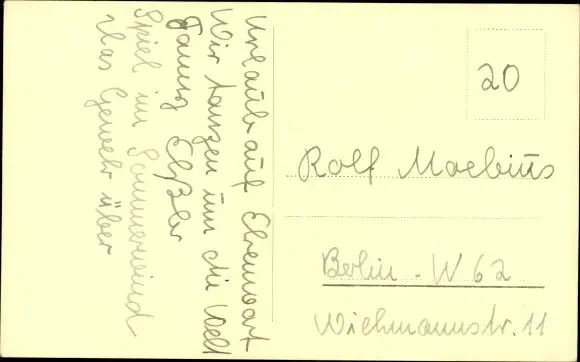 Urlaub auf Ehrenwort
Wir tanzen um die Welt
Fanny Elßler
Spiel im Sommerwind
Das Gewehr über
20
Rolf Moebius
Berlin - W 62
Wichmannstr. 11